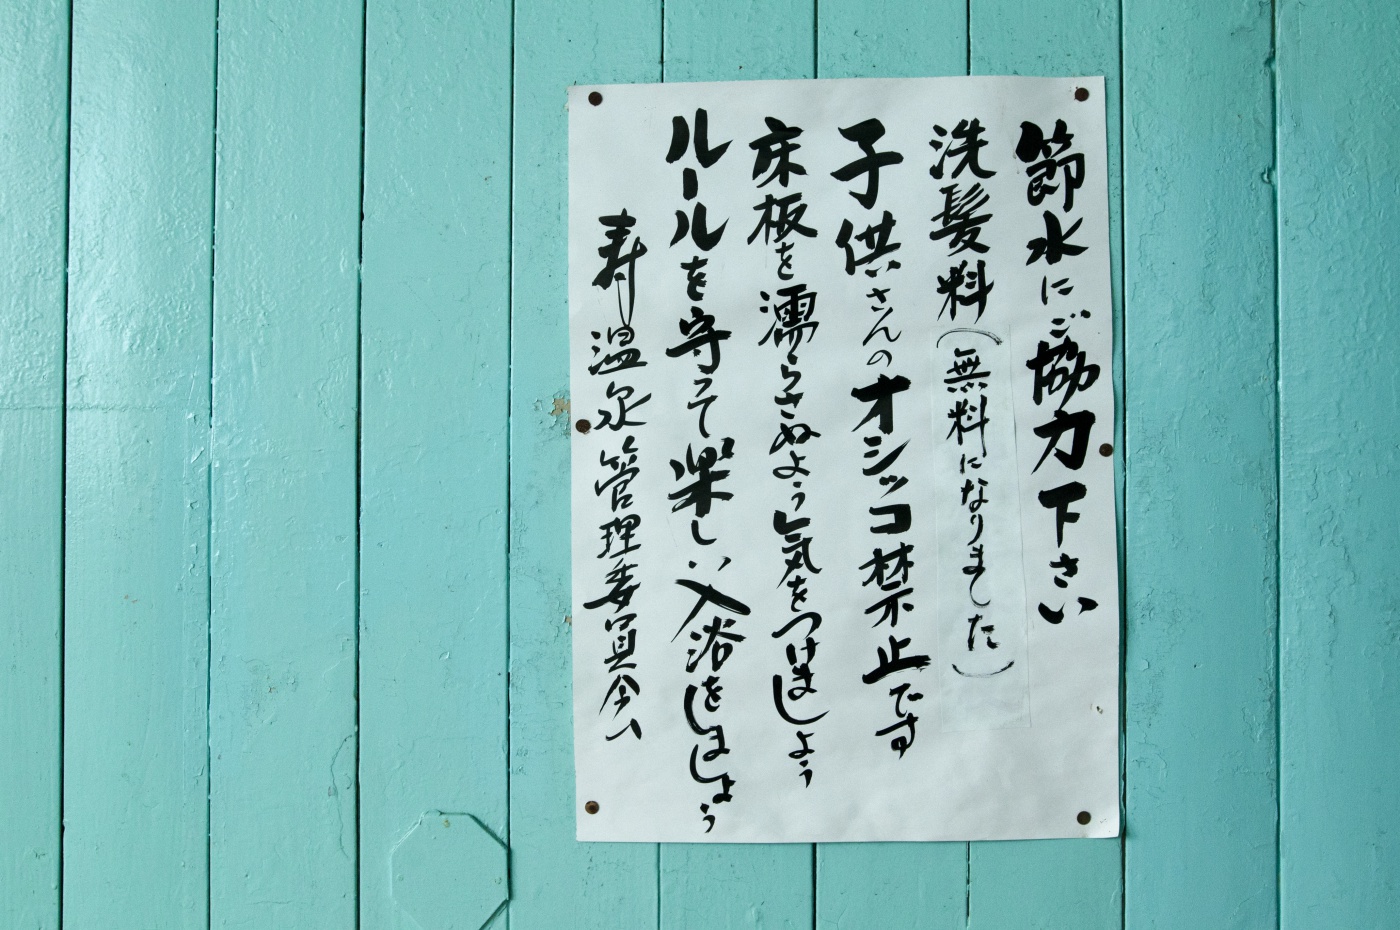 節水にご協力下さい
洗髪料(無料になりました)
子供さんのオシッコ禁止です
床板を濡らさぬよう気をつけましょう
ルールを守って楽しい入浴をしましょう
寿温泉管理委員会